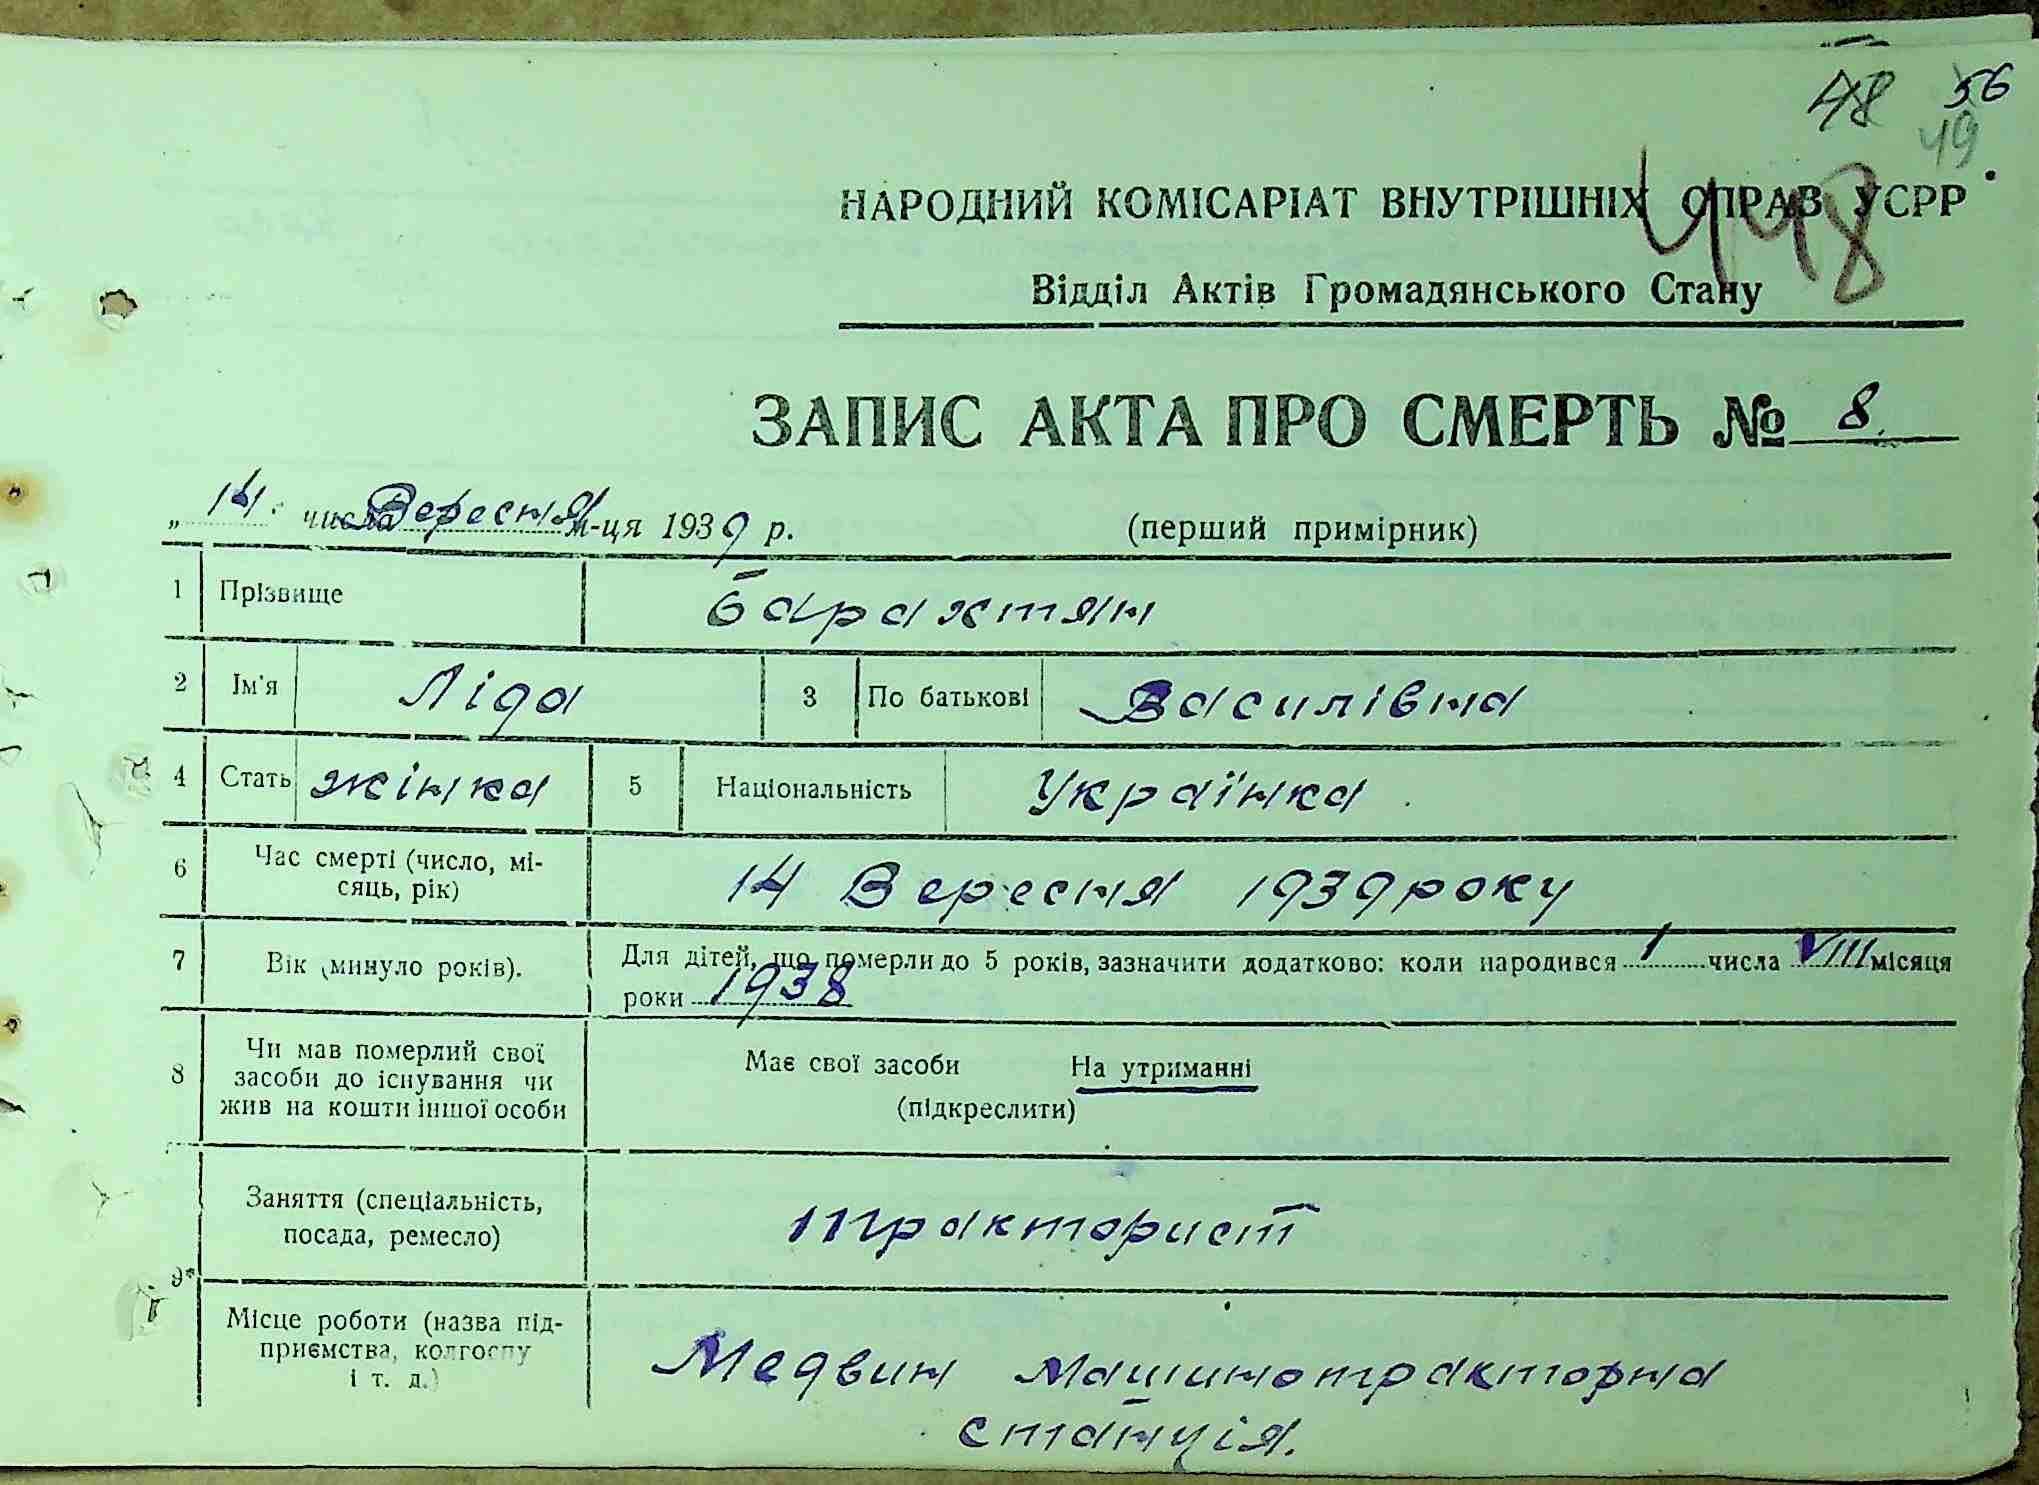 48 56
49
448
НАРОДНИЙ КОМІСАРІАТ ВНУТРІШНІХ СПРАВ УСРР
Відділ Актів Громадянського Стану
ЗАПИС АКТА ПРО СМЕРТЬ № 8.
„ 14. числа Вересня м-ця 1939 р. (перший примірник)
1 Прізвище Барахтян
2 Ім'я Ліда 3 По батькові Василівна
4 Стать жінка 5 Національність Українка
6 Час смерті (число, мі-
сяць, рік) 14 Вересня 1939 року
7 Вік (минуло років). Для дітей, що померли до 5 років, зазначити додатково: коли народився 1 числа VIII місяця
роки 1938
8 Чи мав померлий свої
засоби до існування чи
жив на кошти іншої особи
Має свої засоби На утриманні
(підкреслити)
9* Заняття (спеціальність,
посада, ремесло) тракторист
Місце роботи (назва під-
приємства, колгоспу
і т. д.)
Медвин Машинотракторна
станція.